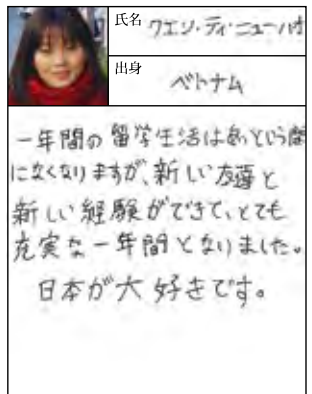 氏名 クエン・ティ・ニューハオ
出身 ベトナム
一年間の留学生活はあっという間
になくなりますが、新しい友達と
新しい経験ができて、とても
充実な一年間となりました。
日本が大好きです。